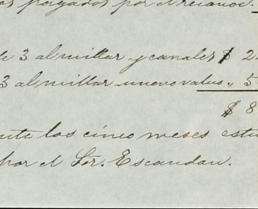 os pagados por el recamo.
de 3 al millar y canales $ 2
3 al millar nuevo valuo, 5
$ 8
nte los cinco meses estu
por el Sor. Escandon.